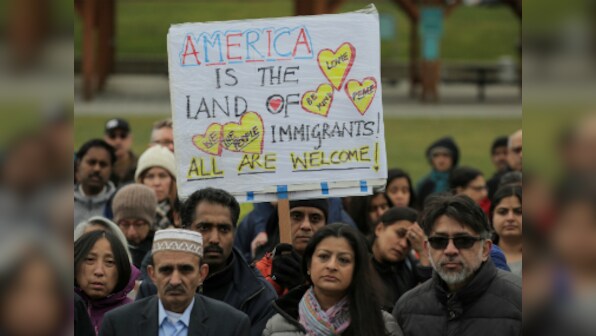 AMERICA
IS THE
LOVE
LAND OF
BE
PEACE
THE
PEOPLE
IMMIGRANTS!
ALL ARE WELCOME!